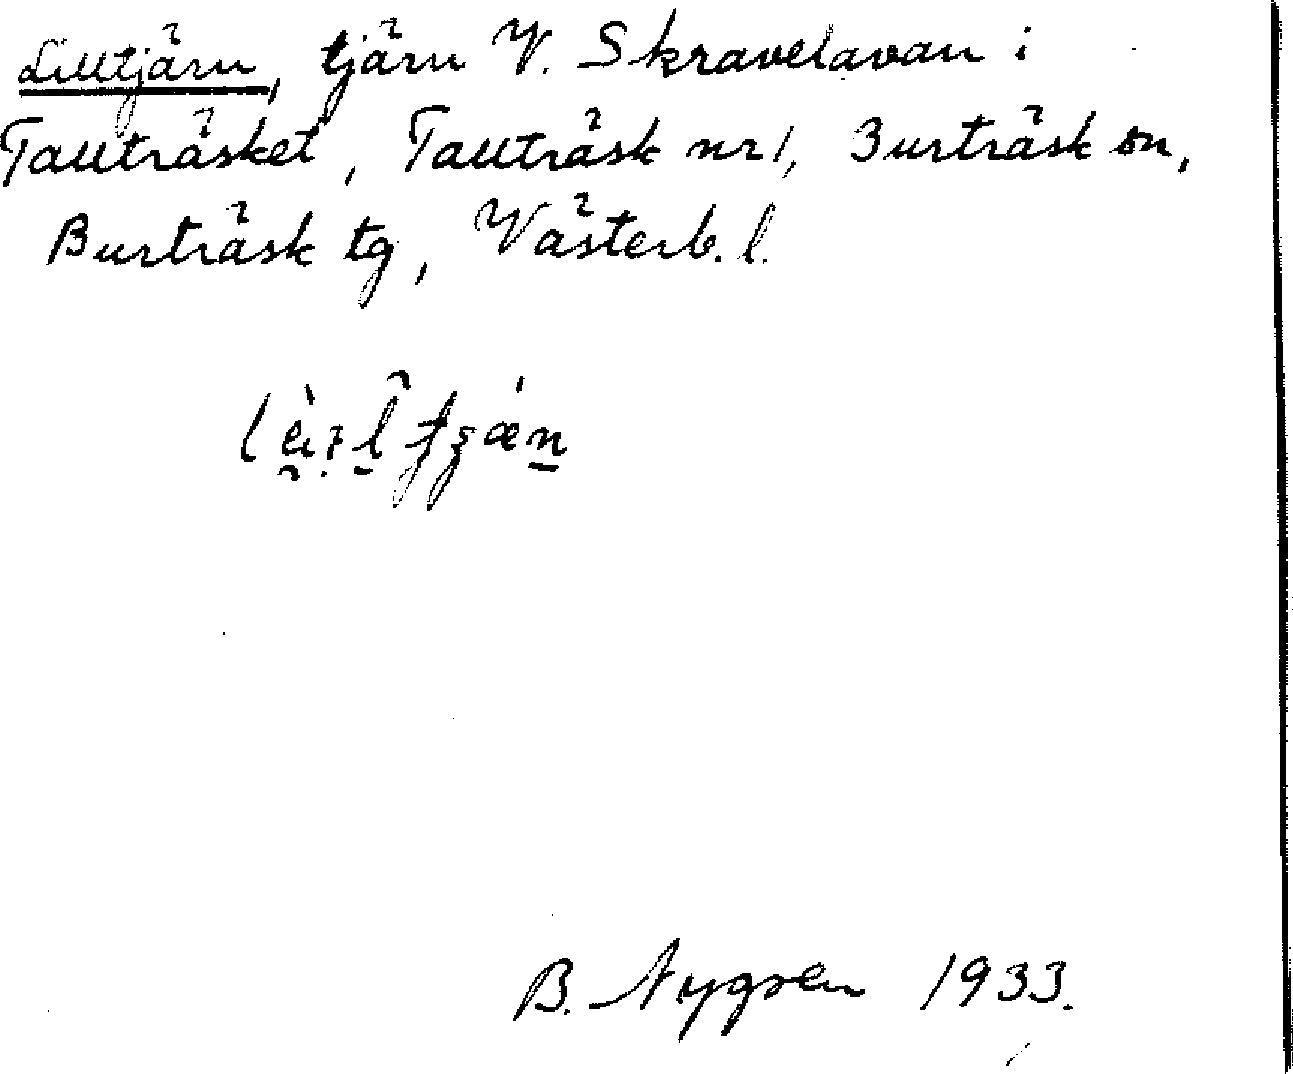 Lilltjärn, tjärn V. Skravelavan i
Tallträsket, Tallträsk nr 1, Burträsk sn,
Burträsk tg, Västerb. l.
B. Nygren 1933.